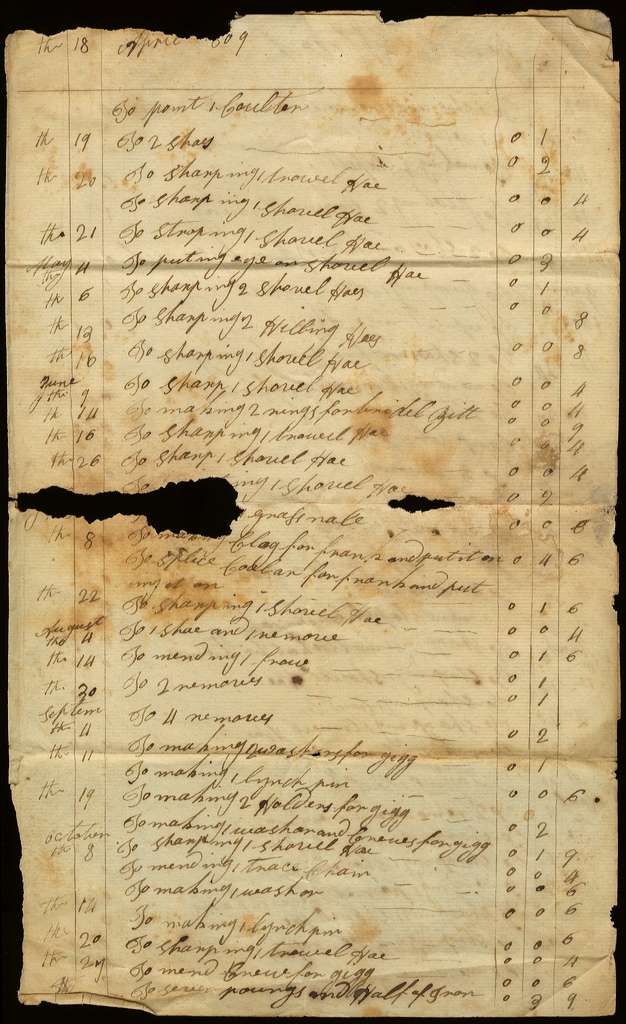 th 18 April 809
To point 1 Coulter
th 19 To 2 shoes 0 1
th 20 To sharping 1 trowel Hae 0 2
To sharping 1 shovel Hae 0 0 4
th 21 To stroping 1 shovel Hae 0 0 4
May th 4 To puting eye on shovel Hae 0 3
th 6 To sharping 2 shovel Haes 0 1
th 13 To sharping 2 Hilling Haes 0 0 8
th 16 To sharping 1 shovel Hae 0 0 8
June th 9 To sharp 1 shovel Hae 0 0 4
th 14 To making 2 rings for bridel Bitt 0 0 4
th 16 To sharping 1 trowel Hae 0 0 9
th 26 To sharp 1 shovel Hae 0 0 4
To ing 1 shovel Hae 0 0 4
1 grass rake 0 2
th 8 To making Clog for frank and put it on 0 0 6
To splice Coalar for frank and put 0 4 6
ing it on
th 22 To sharping 1 shovel Hae 0 1 6
August th 4 To 1 shoe and 1 remove 0 0 4
th 14 To mending 1 frow 0 1 6
th 30 To 2 removes 0 1
Septem th 4 To 4 removes 0 1
th 11 To making 2 washers for gigg 0 2
To making 1 lynch pin 0 1
th 19 To making 2 Holders for gigg 0 0 6
To making 1 washor and Crewes for gigg 0 2
october th 8 To sharping 1 shovel Hae 0 1 9
To mending 1 trace Chain 0 0 4
To making 1 washor 0 0 6
th 14 To making 1 lynch pin 0 0 6
th 20 To sharping 1 trowel Hae 0 0 6
th 27 To mend Crewe for gigg 0 0 4
th To seven pounds and Half of Iron 0 0 6
0 3 9